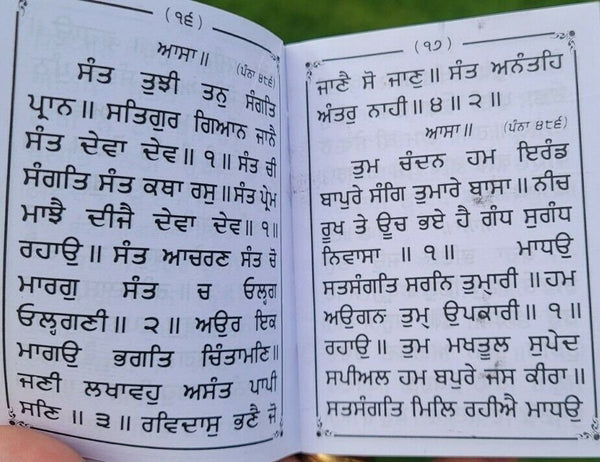 (੧੬)
ਆਸਾ॥
(ਪੰਨਾ ੪੮੬)
ਸੰਤ ਤੁਝੀ ਤਨੁ ਸੰਗਤਿ
ਪ੍ਰਾਨ॥ ਸਤਿਗੁਰ ਗਿਆਨ ਜਾਨੈ
ਸੰਤ ਦੇਵਾ ਦੇਵ॥੧॥ ਸੰਤ ਚੀ
ਸੰਗਤਿ ਸੰਤ ਕਥਾ ਰਸੁ॥ਸੰਤ ਪ੍ਰੇਮ
ਮਾਝੈ ਦੀਜੈ ਦੇਵਾ ਦੇਵ॥੧॥
ਰਹਾਉ॥ ਸੰਤ ਆਚਰਣ ਸੰਤ ਚੋ
ਮਾਰਗੁ ਸੰਤ ਚ ਓਲ੍ਹਗ
ਓਲ੍ਹਗਣੀ॥ ੨॥ ਅਉਰ ਇਕ
ਮਾਗਉ ਭਗਤਿ ਚਿੰਤਾਮਣਿ॥
ਜਣੀ ਲਖਾਵਹੁ ਅਸੰਤ ਪਾਪੀ
ਸਣਿ॥੩॥ ਰਵਿਦਾਸੁ ਭਣੈ ਜੋ
(੧੭)
ਜਾਣੈ ਸੋ ਜਾਣੁ॥ ਸੰਤ ਅਨੰਤਹਿ
ਅੰਤਰੁ ਨਾਹੀ॥੪॥੨॥
ਆਸਾ॥ (ਪੰਨਾ ੪੮੬)
ਤੁਮ ਚੰਦਨ ਹਮ ਇਰੰਡ
ਬਾਪੁਰੇ ਸੰਗਿ ਤੁਮਾਰੇ ਬਾਸਾ॥ਨੀਚ
ਰੂਖ ਤੇ ਊਚ ਭਏ ਹੈ ਗੰਧ ਸੁਗੰਧ
ਨਿਵਾਸਾ ॥੧॥ ਮਾਧਉ
ਸਤਸੰਗਤਿ ਸਰਨਿ ਤੁਮ੍ਹਾਰੀ॥ਹਮ
ਅਉਗਨ ਤੁਮ੍ਹ ਉਪਕਾਰੀ॥੧॥
ਰਹਾਉ॥ ਤੁਮ ਮਖਤੂਲ ਸੁਪੇਦ
ਸਪੀਅਲ ਹਮ ਬਪੁਰੇ ਜਸ ਕੀਰਾ॥
ਸਤਸੰਗਤਿ ਮਿਲਿ ਰਹੀਐ ਮਾਧਉ